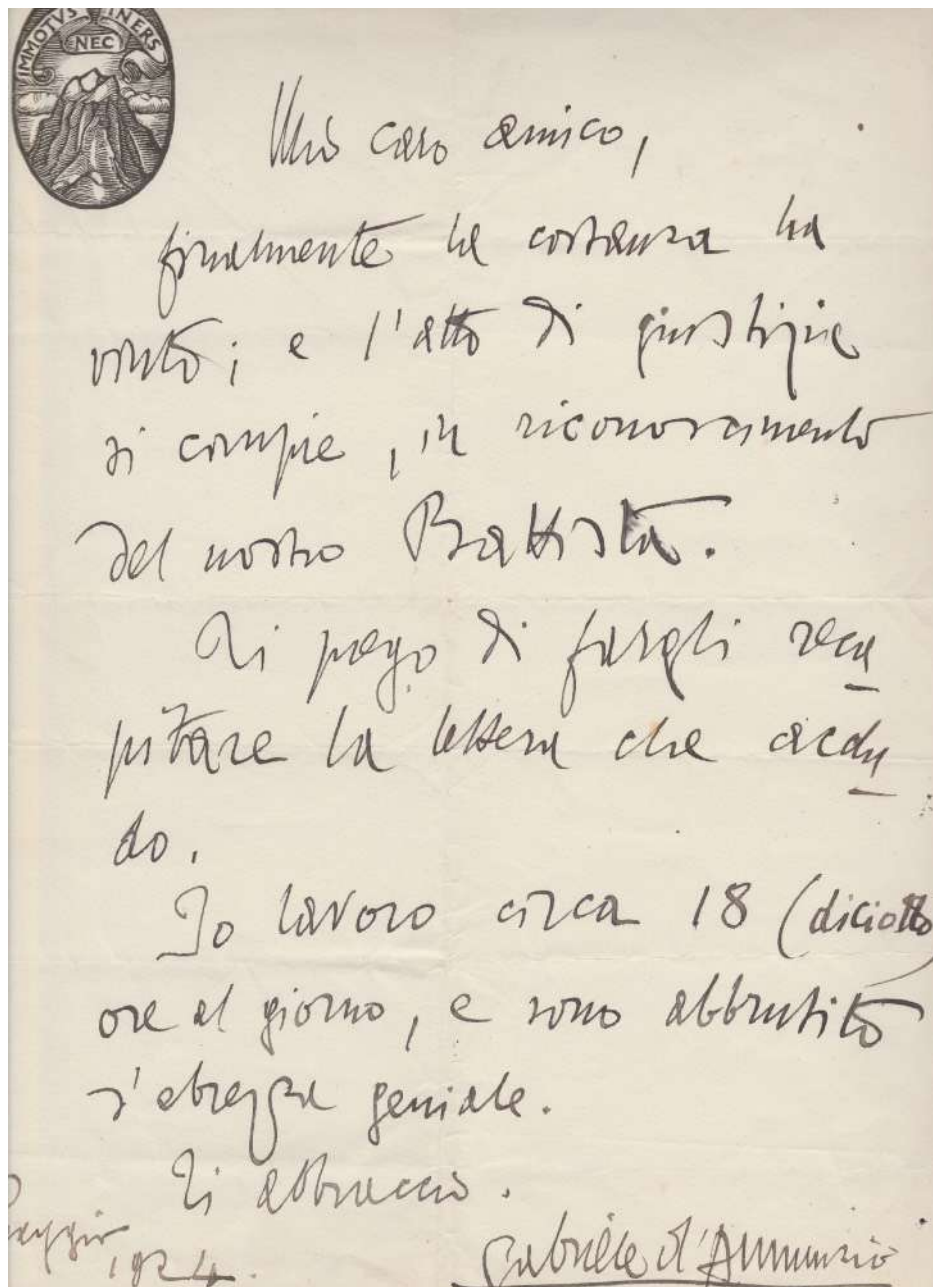 IMMOTVS NEC INERS
Mio caro amico,
finalmente la costanza ha
vinto; e l'atto di giustizia
si compie, in riconoscimento
del nostro Battista.
Ti prego di fargli reca
pitare la lettera che acclu
do.
Io lavoro circa 18 (diciotto)
ore al giorno, e sono abbrutito
d'ebrezza geniale.
Ti abbraccio.
Gabriele d'Annunzio
maggio
1924.